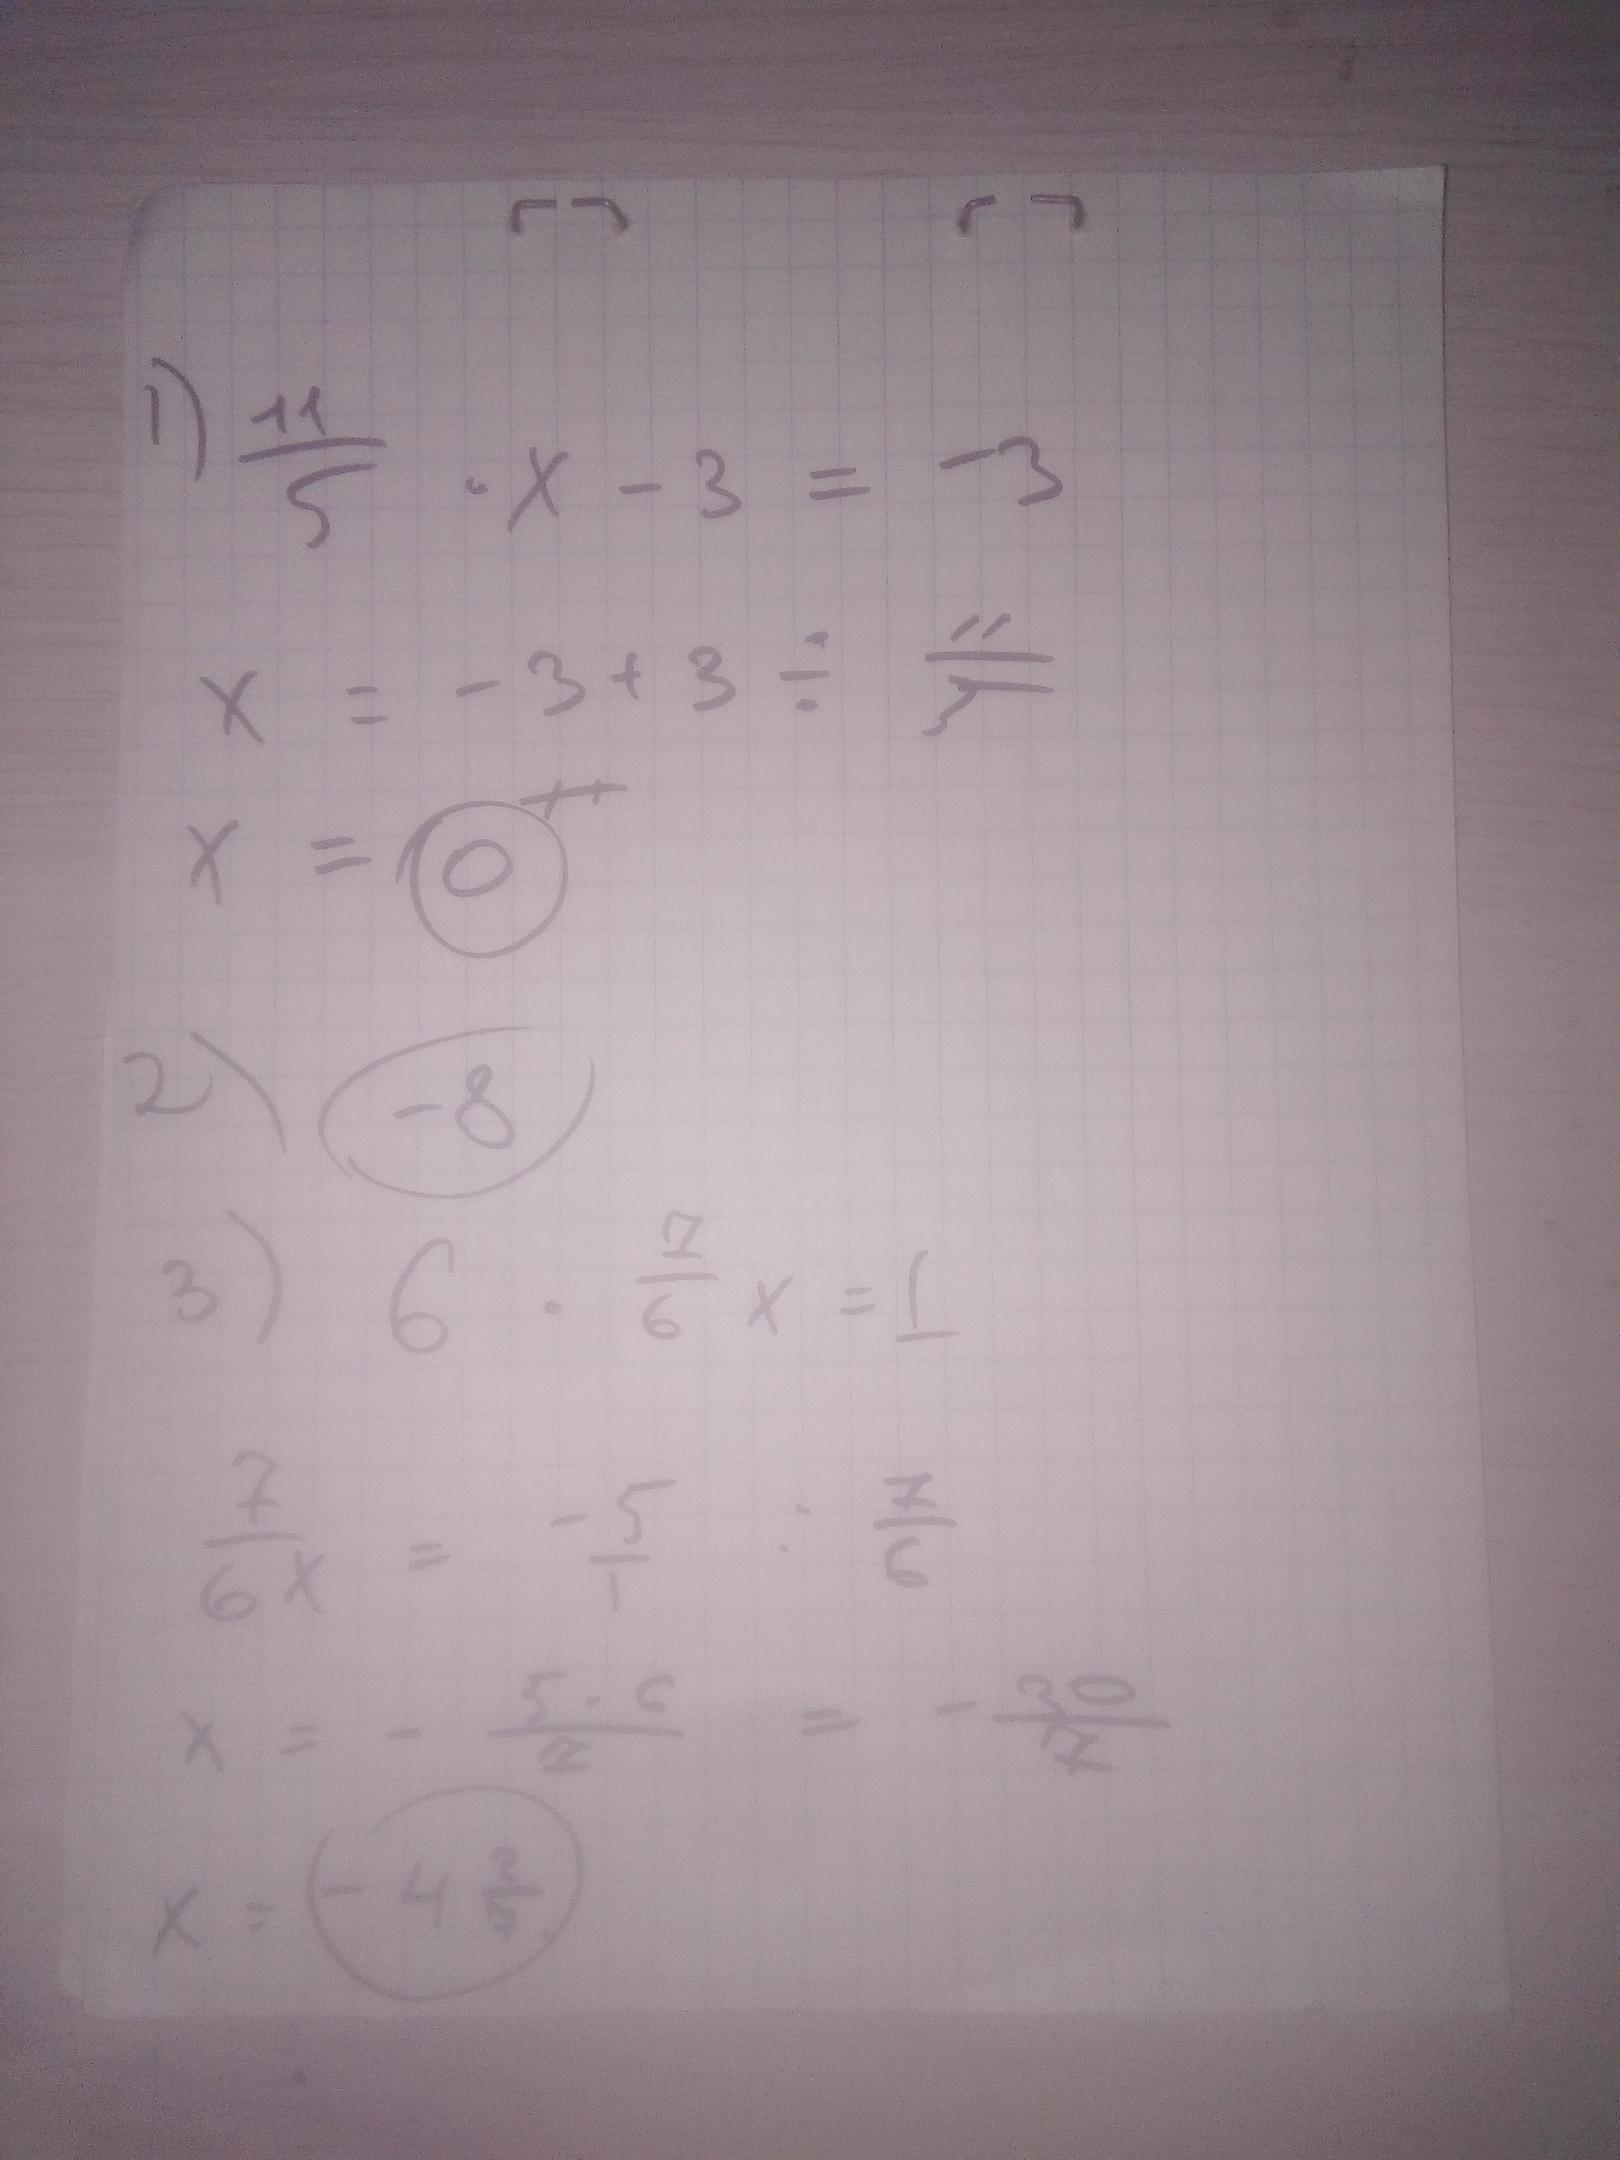 1) 11/5 · x - 3 = -3
x = -3 + 3 ÷ 11/5
x = 0
2) -8
3) 6 · 7/6 x = 1
7/6 x = -5/1 : 7/6
x = - 5·6/7 = - 30/7
x = -4 2/7